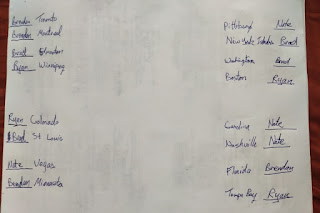 Brendon Toronto
Brendon Montreal
Brad Edmonton
Ryan Winnipeg
Ryan Colorado
Brad St Louis
Nate Vegas
Brendon Minnesota
Pittsburgh Nate
New York Brad
Washington Brad
Boston Ryan
Carolina Nate
Nashville Nate
Florida Brendon
Tampa Bay Ryan